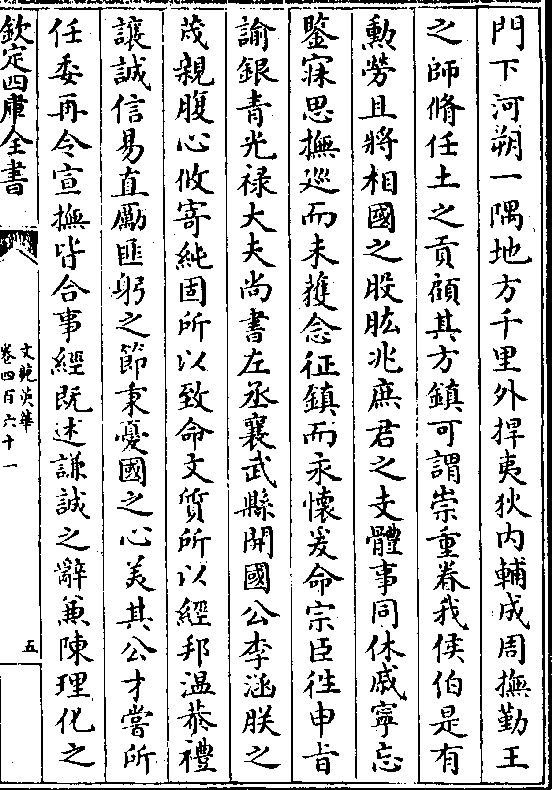 門下河朔一隅地方千里外捍夷狄内輔成周撫勤王
之師脩任土之貢顧其方鎮可謂崇重眷我侯伯是有
勲勞且將相國之股肱兆庶君之支體事同休戚寧忘
鑒寐思撫巡而未獲念征鎮而永懷爰命宗臣徃申旨
諭銀青光禄大夫尚書左丞襄武縣開國公李涵朕之
茂親腹心攸寄純固所以致命文質所以經邦温恭禮
讓誠信易直勵匪躬之節秉憂國之心美其公才嘗所
任委再令宣撫皆合事經既述謙誠之辭兼陳理化之
欽定四庫全書
文苑英華
卷四百六十一
五